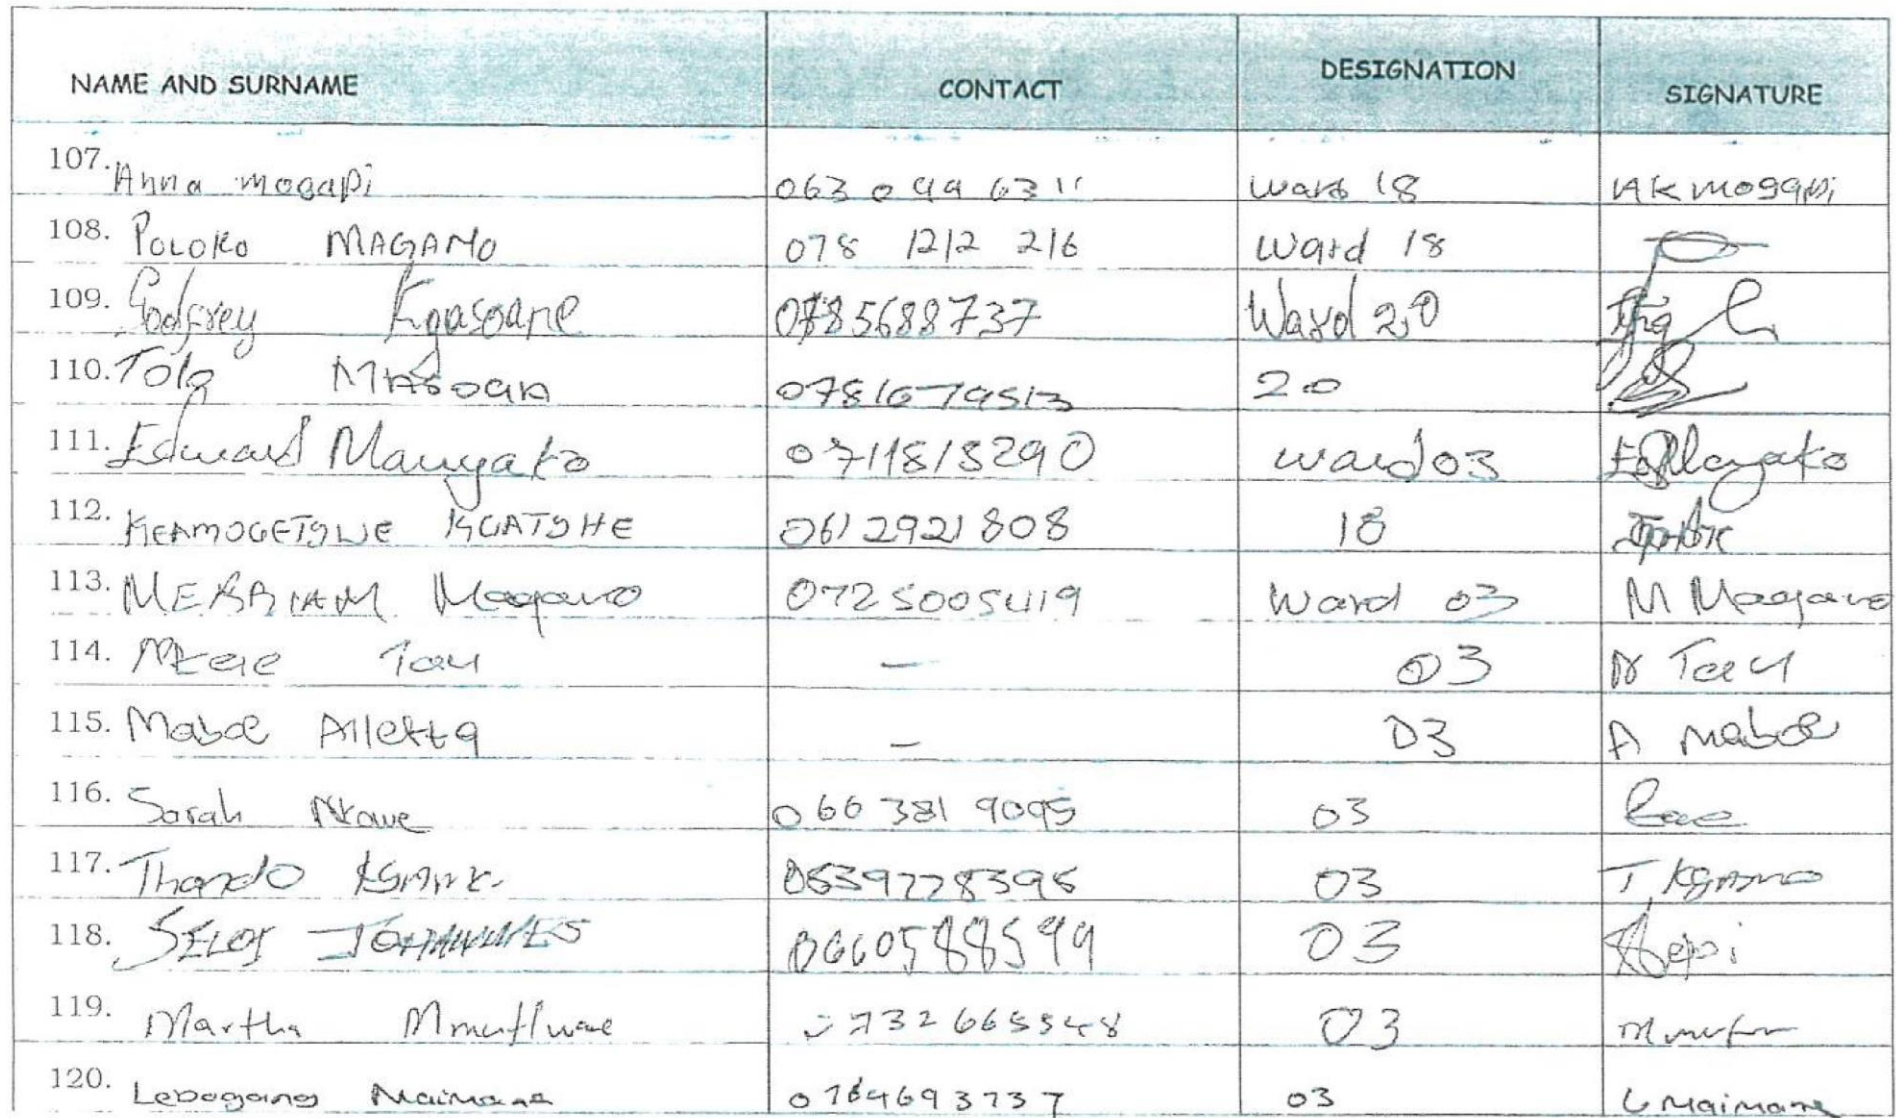 NAME AND SURNAME CONTACT DESIGNATION SIGNATURE
107. Anna mogapi 063 099 6311 ward 18 AK mogapi
108. POLOKO MAGANO 078 1212 216 Ward 18
109. Godfrey Kgasoane 0785688737 Ward 20
110. Tolo 0781679513 20
111. Edward Manyako 0711813290 ward 03
112. KEAMOGETSWE KGATSHE 0612921808 18
113. MERRIAM Magano 0725005419 Ward 03 M Magano
114. Tau - 03 N Tau
115. Maboe Alletta - 03 A maboe
116. Sarah Nkawe 066 381 9095 03
117. Thando 0639778395 03 T
118. JOHANNES 0660588599 03
119. Martha 0732665548 03
120. Lebogang Maimane 0784693737 03 L Maimane